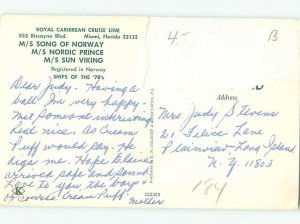 ROYAL CARIBBEAN CRUISE LINE
853 Biscayne Blvd. Miami, Florida 33132
M/S SONG OF NORWAY
M/S NORDIC PRINCE
M/S SUN VIKING
Registered in Norway
SHIPS OF THE '70's
4-
B
Dear Judy - Having a
ball. Im very happy.
Met someone interesting
Kid nice. As Cream
Puff would say. He
digs me. Hope
arrived safe and sound
Love to you, the boys &
of course "Cream Puff".
Mother
Address
Mrs Judy Stevens
21 Felice Lane
Plainview Long Island
N.Y. 11803
184
132359